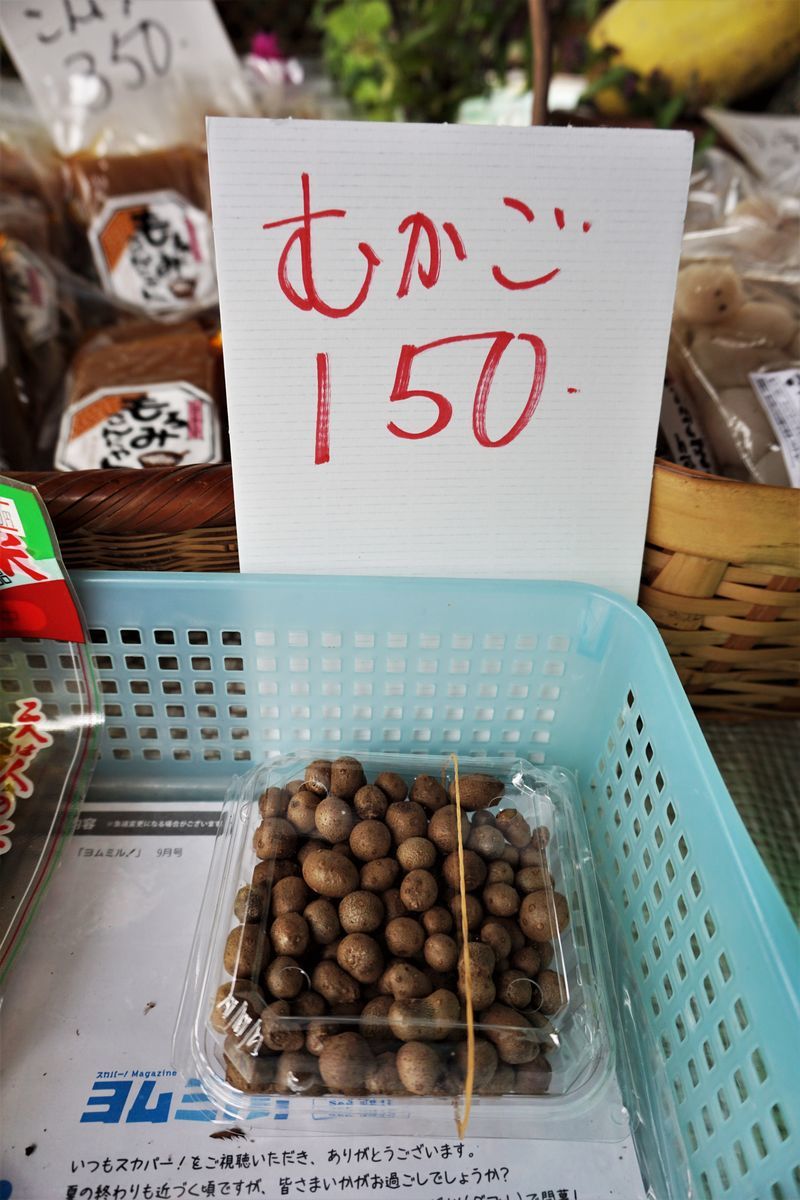 350.
むかご
150.
もろみ
もろみ
こんにゃく
※急遽変更になる場合がございます
「ヨムミル！」 9月号
スカパー！Magazine
いつもスカパー！をご視聴いただき、ありがとうございます。
夏の終わりも近づく頃ですが、皆さまいかがお過ごしでしょうか？